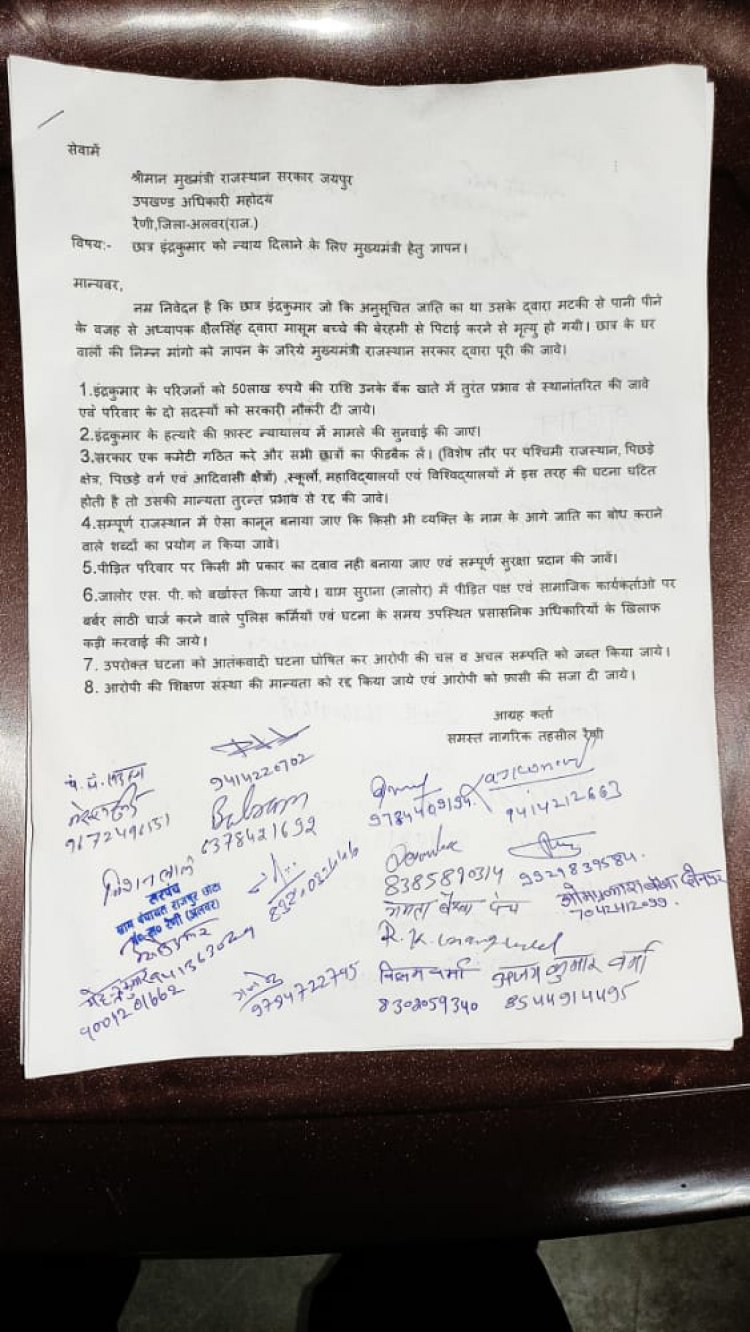 सेवामें
श्रीमान मुख्यमंत्री राजस्थान सरकार जयपुर
उपखण्ड अधिकारी महोदय
रैणी,जिला-अलवर(राज.)
विषय:- छात्र इंद्रकुमार को न्याय दिलाने के लिए मुख्यमंत्री हेतु ज्ञापन।
मान्यवर,
नम्र निवेदन है कि छात्र इंद्रकुमार जो कि अनुसूचित जाति का था उसके द्वारा मटकी से पानी पीने
के वजह से अध्यापक क्षैलसिंह द्वारा मासूम बच्चे की बेरहमी से पिटाई करने से मृत्यु हो गयी। छात्र के घर
वालों की निम्न मांगो को ज्ञापन के जरिये मुख्यमंत्री राजस्थान सरकार द्वारा पूरी की जावे।
1.इंद्रकुमार के परिजनों को 50लाख रुपये की राशि उनके बैंक खाते में तुरंत प्रभाव से स्थानांतरित की जावे
एवं परिवार के दो सदस्यों को सरकारी नौकरी दी जाये।
2.इंद्रकुमार के हत्यारे की फ़ास्ट न्यायालय में मामले की सुनवाई की जाए।
3.सरकार एक कमेटी गठित करे और सभी छात्रों का फीडबैक लें। (विशेष तौर पर पश्चिमी राजस्थान, पिछड़े
क्षेत्र, पिछड़े वर्ग एवं आदिवासी क्षेत्रों) ,स्कूलों, महाविद्यालयों एवं विश्विद्यालयों में इस तरह की घटना घटित
होती है तो उसकी मान्यता तुरन्त प्रभाव से रद्द की जावे।
4.सम्पूर्ण राजस्थान में ऐसा कानून बनाया जाए कि किसी भी व्यक्ति के नाम के आगे जाति का बोध कराने
वाले शब्दों का प्रयोग न किया जावे।
5.पीड़ित परिवार पर किसी भी प्रकार का दबाव नही बनाया जाए एवं सम्पूर्ण सुरक्षा प्रदान की जावें।
6.जालोर एस. पी. को बर्खास्त किया जाये। ग्राम सुराना (जालोर) में पीड़ित पक्ष एवं सामाजिक कार्यकर्ताओ पर
बर्बर लाठी चार्ज करने वाले पुलिस कर्मियों एवं घटना के समय उपस्थित प्रसासनिक अधिकारियों के खिलाफ
कड़ी करवाई की जाये।
7. उपरोक्त घटना को आतंकवादी घटना घोषित कर आरोपी की चल व अचल सम्पति को जब्त किया जाये।
8. आरोपी की शिक्षण संस्था की मान्यता को रद्द किया जाये एवं आरोपी को फ़ासी की सजा दी जाये।
आग्रह कर्ता
समस्त नागरिक तहसील रैणी
9414220702
9672496151
6378421692
9784409194
9414212663
सरपंच
ग्राम पंचायत राजपुर छोटा
पं० स० रैणी (अलवर)
8385890314
9929839584.
ममता बैरवा पंच
7042412099.
9001201662
9794722795
विक्रम वर्मा
8302059340
अजय कुमार वर्मा
8544914495